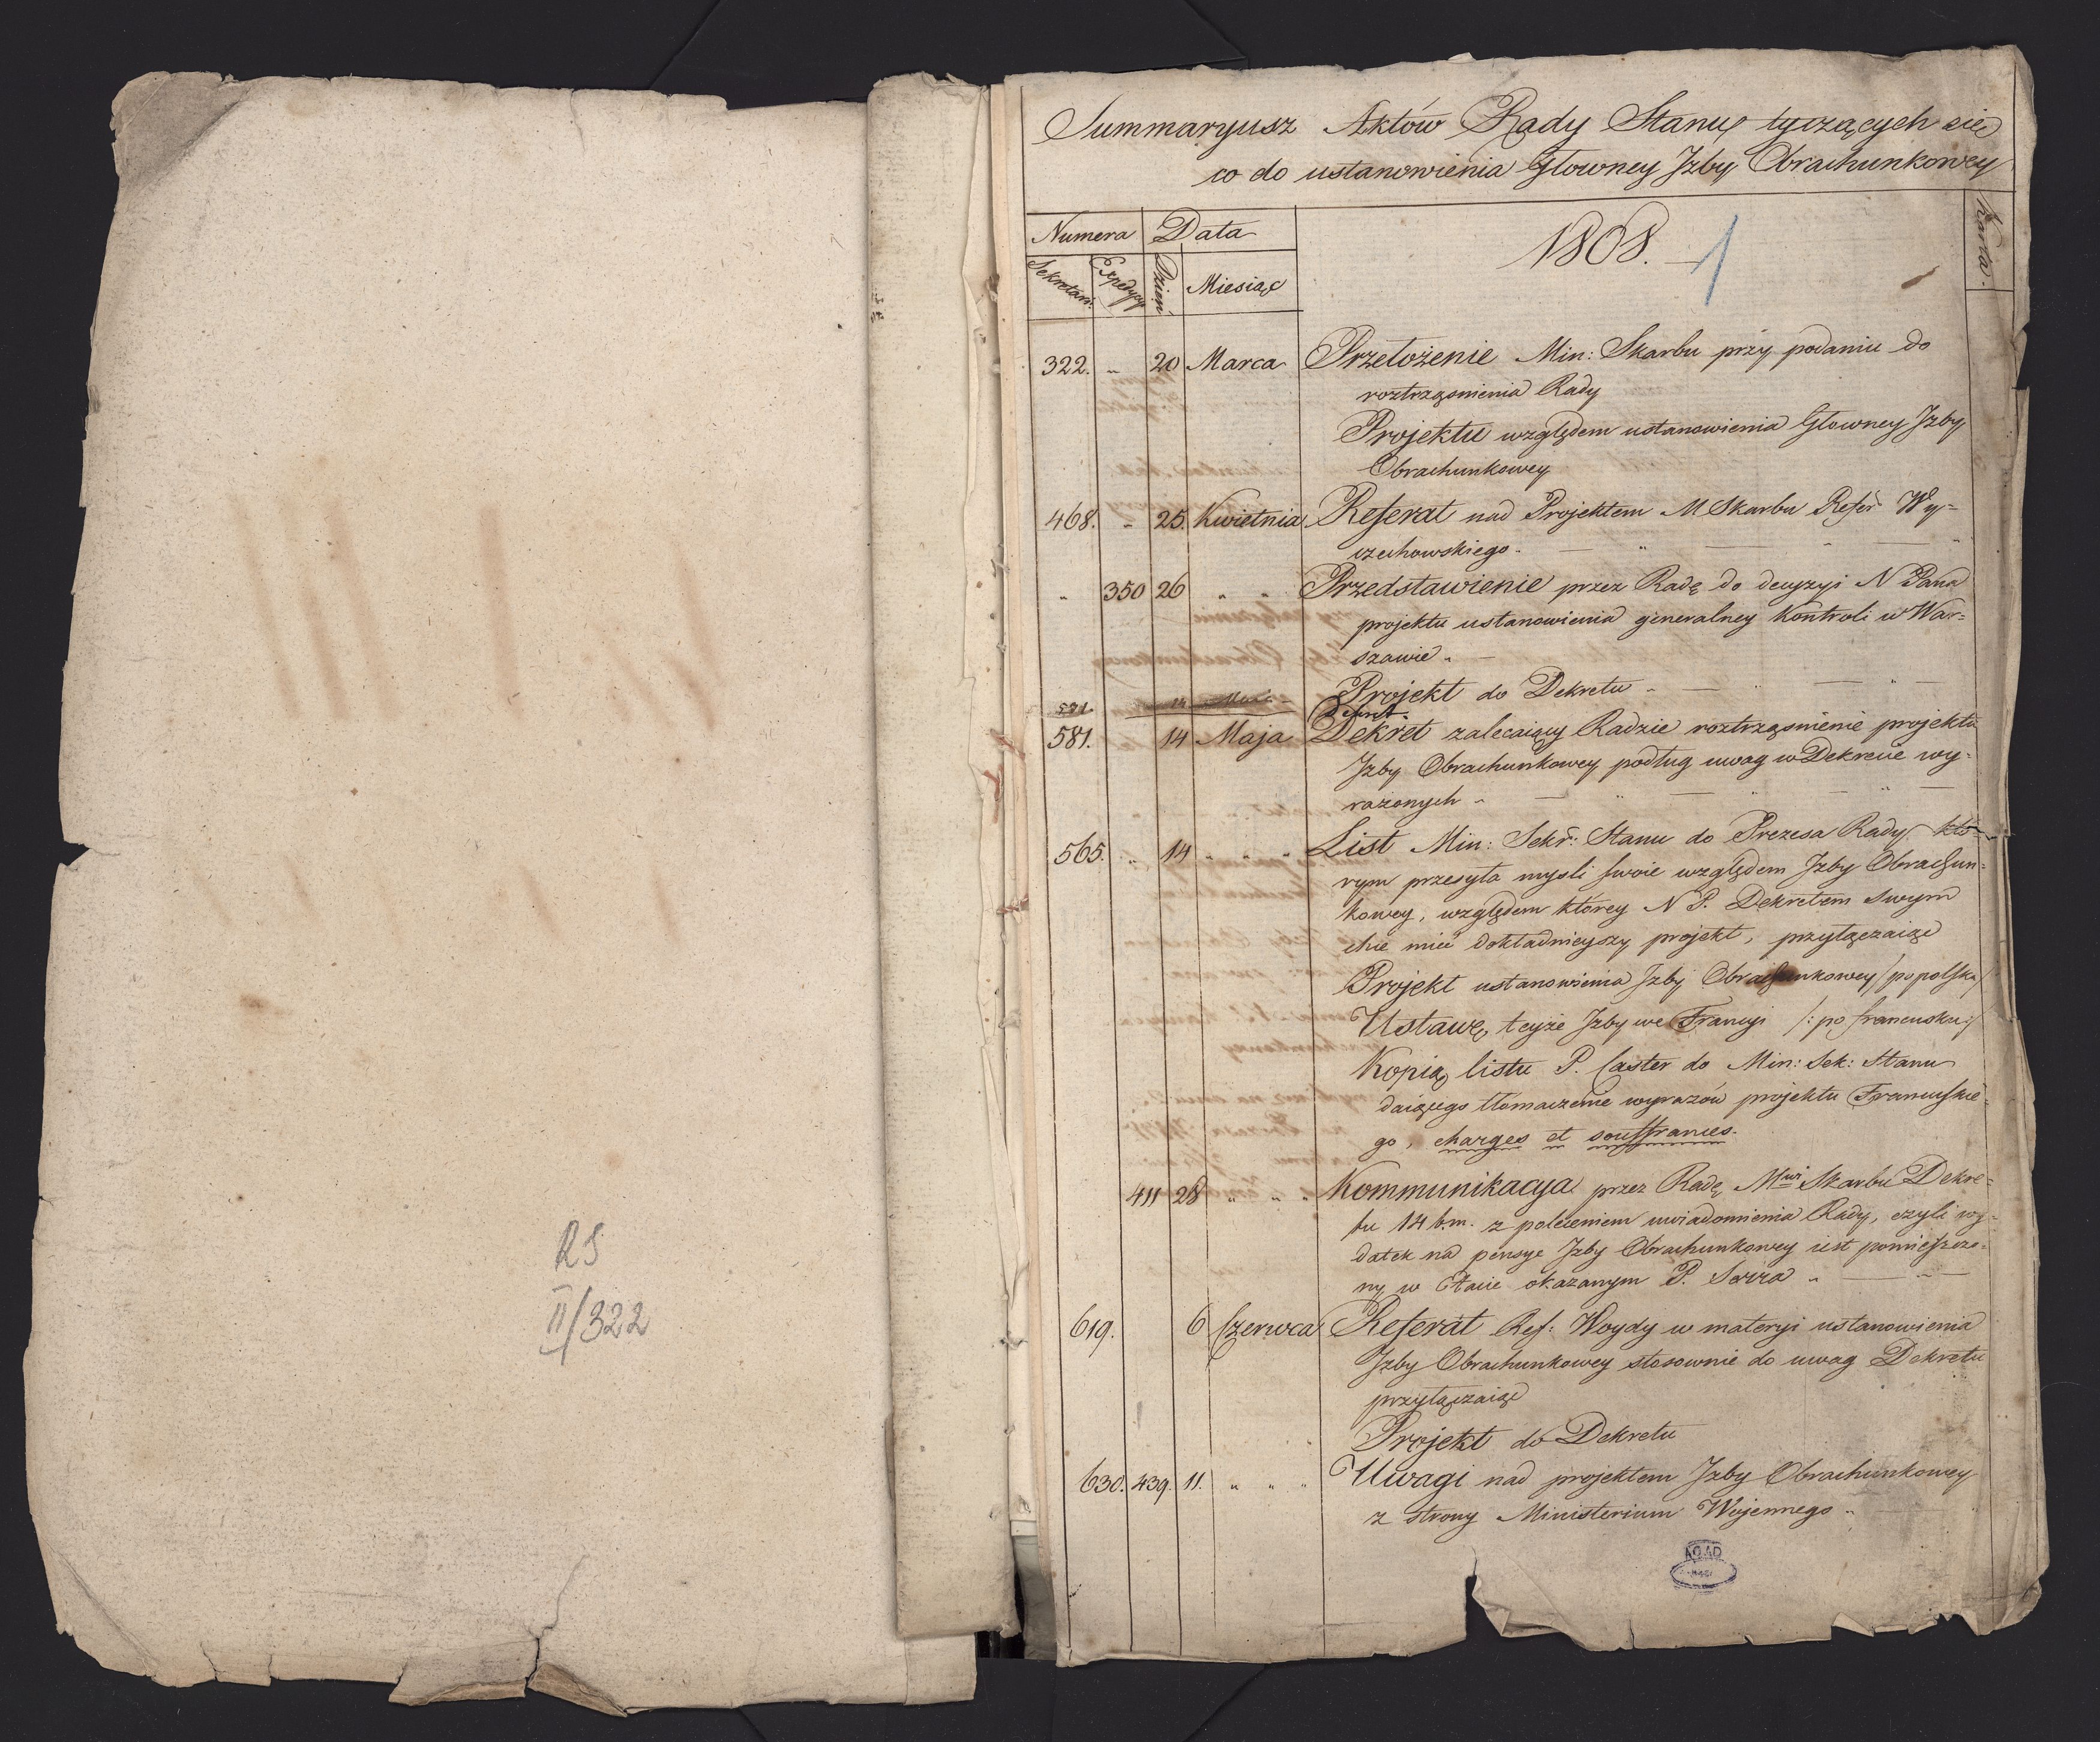 RS
II/322
Summaryusz Aktów Rady Stanu tyczących się
co do ustanowienia Głowney Jzby Obrachunkowey
Numera Data 1808. 1 Karta.
Sekretari: Expedycyi Dzień Miesiąc
322. „ 20 Marca Przełożenie Min: Skarbu przy podaniu do
roztrząśnienia Rady
Projektu względem ustanowienia Głowney Jzby
Obrachunkowey
468. „ 25. Kwietnia Referat nad Projektem M Skarbu Refer. Wy=
czechowskiego. — „ — „ — „
„ 350 26 „ „ Przedstawienie przez Radę do decyzyi N Pana
projektu ustanowienia generalney Kontroli w War=
szawie „ —
Projekt do Dekretu „ — „ — „ —
581. 14 Maja Dekret zalecaiący Radzie roztrząśnienie projektu
Jzby Obrachunkowey podług uwag w Dekrecie wy=
rażonych „ — „ — „ — „ —
565. „ 14 „ „ „ List Min: Sekr: Stanu do Prezesa Rady, któ=
rym przesyła mysli swoie względem Jzby Obrachun=
kowey, względem którey N P. Dekretem swym
chce mieć dokładnieyszy projekt, przyłączaiąc
Projekt ustanowienia Jzby Obrachunkowey /po polsku/
Ustawę teyże Jzby we Francyi /: po francusku :/
Kopią listu P. Caster do Min: Sek: Stanu
daiącego tłómaczenie wyrazów projektu Francuskie=
go, charges et souffrances.
411 28 „ „ „ Kommunikacya przez Radę Mwi Skarbu Dekre=
tu 14 b.m. z poleceniem uwiadomienia Rady, czyli wy=
datek na pensye Jzby Obrachunkowey iest pomieszczo=
ny w Etacie okazanym P. Serra „ — „ —
619. 6 Czerwca Referat Ref: Woydy w materyi ustanowienia
Jzby Obrachunkowey stosownie do uwag Dekretu
przyłączaiąc
Projekt do Dekretu
630. 439. 11. „ „ „ Uwagi nad projektem Jzby Obrachunkowey
z strony Ministerium Wojennego „
AGAD